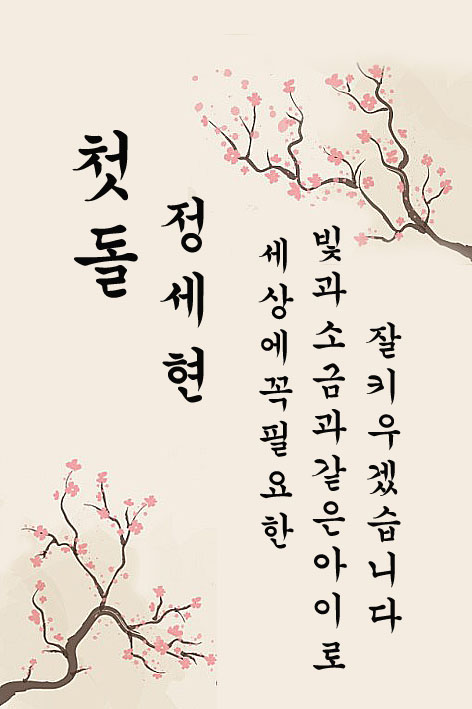 첫돌
정세현
세상에꼭필요한
빛과소금과같은아이로
잘키우겠습니다